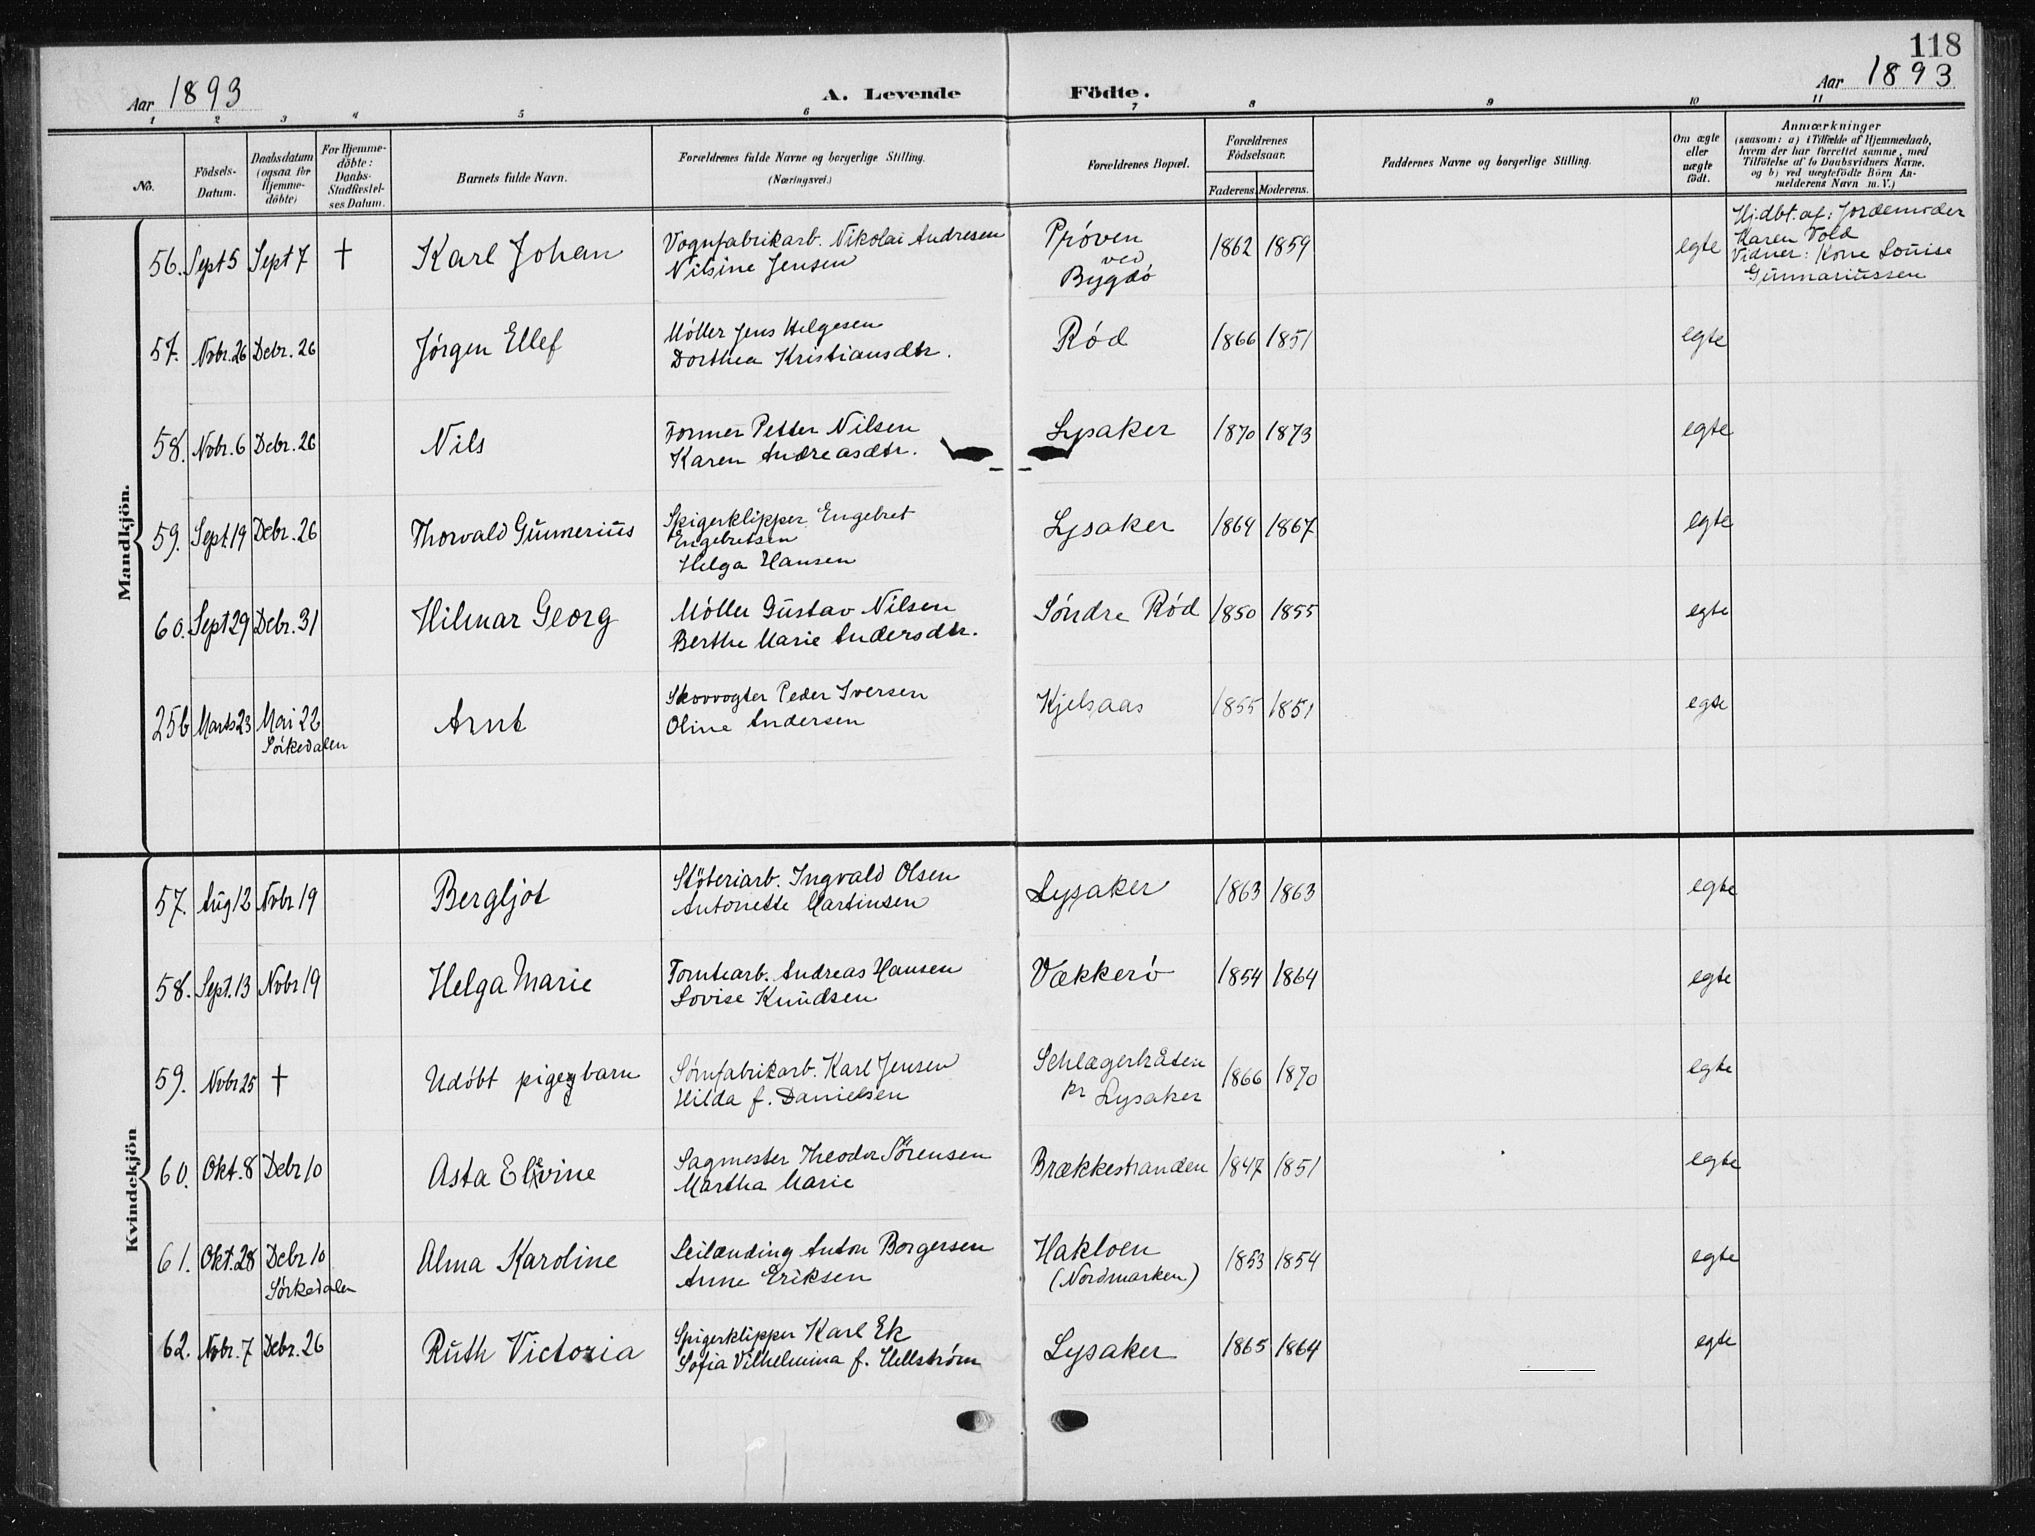 118
Aar 1893
A. Levende Födte.
Aar 1893
1 2 3 4 5 6 7 8 9 10 11
No.
Födsels-
Datum.
Daabsdatum
(ogsaa for
Hjemme-
döbte)
For Hjemme-
döbte:
Daabs-
Stadfæstel-
ses Datum.
Barnets fulde Navn.
Forældrenes fulde Navne og borgerlige Stilling.
(Næringsvei.)
Forældrenes Bopæl.
Forældrenes
Födselsaar.
Faderens. Moderens.
Faddernes Navne og borgerlige Stilling.
Om ægte
eller
uægte
født.
Anmærkninger
(saasom: a) i Tilfælde af Hjemmedaab,
hvem der har forrettet samme, med
Tilföielse af to Daabsvidners Navne.
og b) ved uægtefödte Börn An-
melderens Navn m. V.)
Mandkjön.
56. Sept 5 Sept 7 † Karl Johan
Vognfabrikarb. Nikolai Andresen
Nilsine Jensen
Prøven
ved
Bygdø
1862 1859 egte
Hj.dbt. af: Jordemoder
Karen Vold
Vidner: Kone Louise
Gunnariussen
57. Nvbr. 26 Debr. 26 Jørgen Ellef
Møller Jens Helgesen
Dorthea Kristiansdtr.
Rød 1866 1851 egte
58. Nvbr. 6 Debr. 26 Nils
Former Petter Nilsen
Karen Andreasdtr.
Lysaker 1870 1873 egte
59. Sept. 19 Debr. 26 Thorvald Gunnerius
Spigerklipper Engebret
Engebretsen
Helga Hansen
Lysaker 1864 1867 egte
60. Sept 29 Debr. 31 Hilmar Georg
Møller Gustav Nilsen
Berthe Marie Andersdtr.
Søndre Rød 1850 1855 egte
25b Marts 23 Mai 22
Sørkedalen
Arnt
Skovvogter Peder Iversen
Oline Andersen
Kjelsaas 1855 1851 egte
Kvindekjön
57. Aug 12 Nvbr 19 Bergljot
Støberiarb. Ingvald Olsen
Antonette Martinsen
Lysaker 1863 1863 egte
58. Sept. 13 Nvbr 19 Helga Marie
Tomtearb. Andreas Hansen
Lovise Knudsen
Vækkerø 1854 1864 egte
59. Nvbr 25 † Udøbt pigebarn
Sømfabrikarb. Karl Jensen
Hilda f. Danielsen
pr Lysaker
1866 1870 egte
60. Okt. 8 Debr 10 Asta Elvine
Sagmester Theodor Sørensen
Martha Marie
Brækkestranden 1847 1851 egte
61. Okt. 28 Debr 10
Sørkedalen
Alma Karoline
Leilænding Anton Borgersen
Anne Eriksen
Hakloen
(Nordmarken)
1853 1854 egte
62. Nvbr. 7 Debr. 26 Ruth Victoria
Spigerklipper Karl Ek
Sofia Vilhelmina f. Hellstrøm
Lysaker 1865 1864 egte